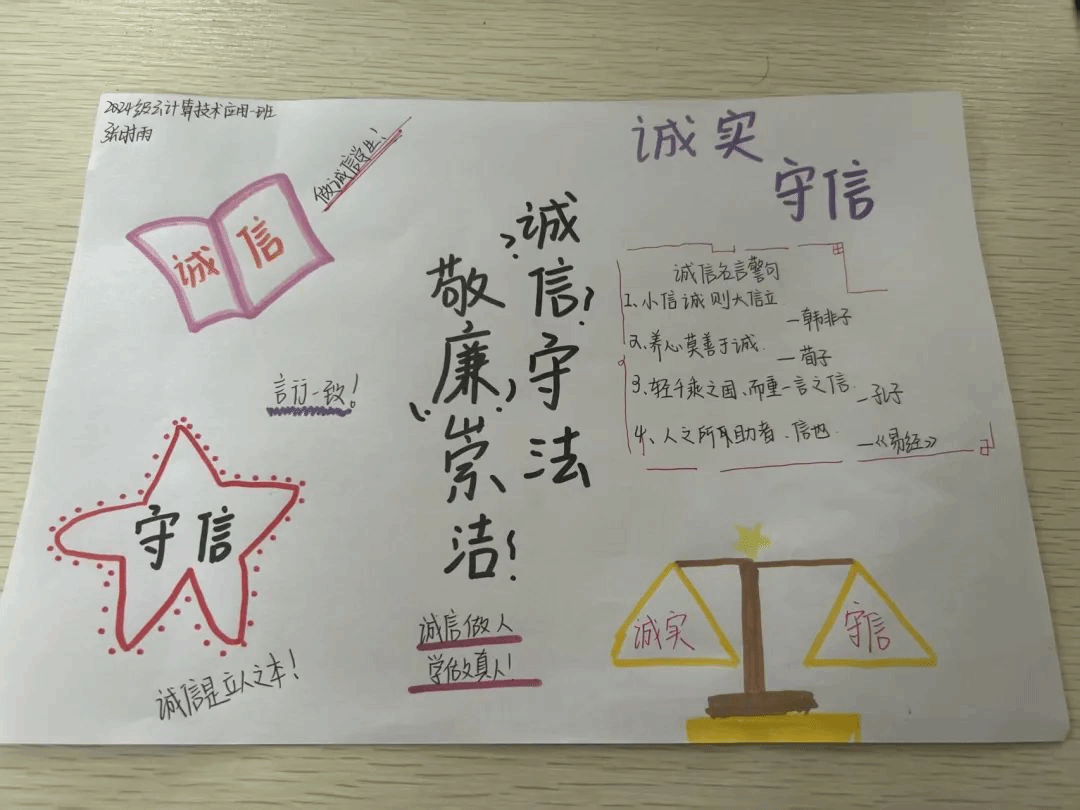 2024级云计算技术应用一班
张时雨
做诚信学生!
诚 信
诚实
守信
诚信守法
敬廉崇洁!
诚信名言警句
1、小信诚则大信立
—韩非子
2、养心莫善于诚.
—荀子
3、轻千乘之国、而重一言之信.
—孔子
4、人之所助者、信也.
—《易经》
言行一致!
守信
诚信是立人之本!
诚信做人
学做真人!
诚实
守信